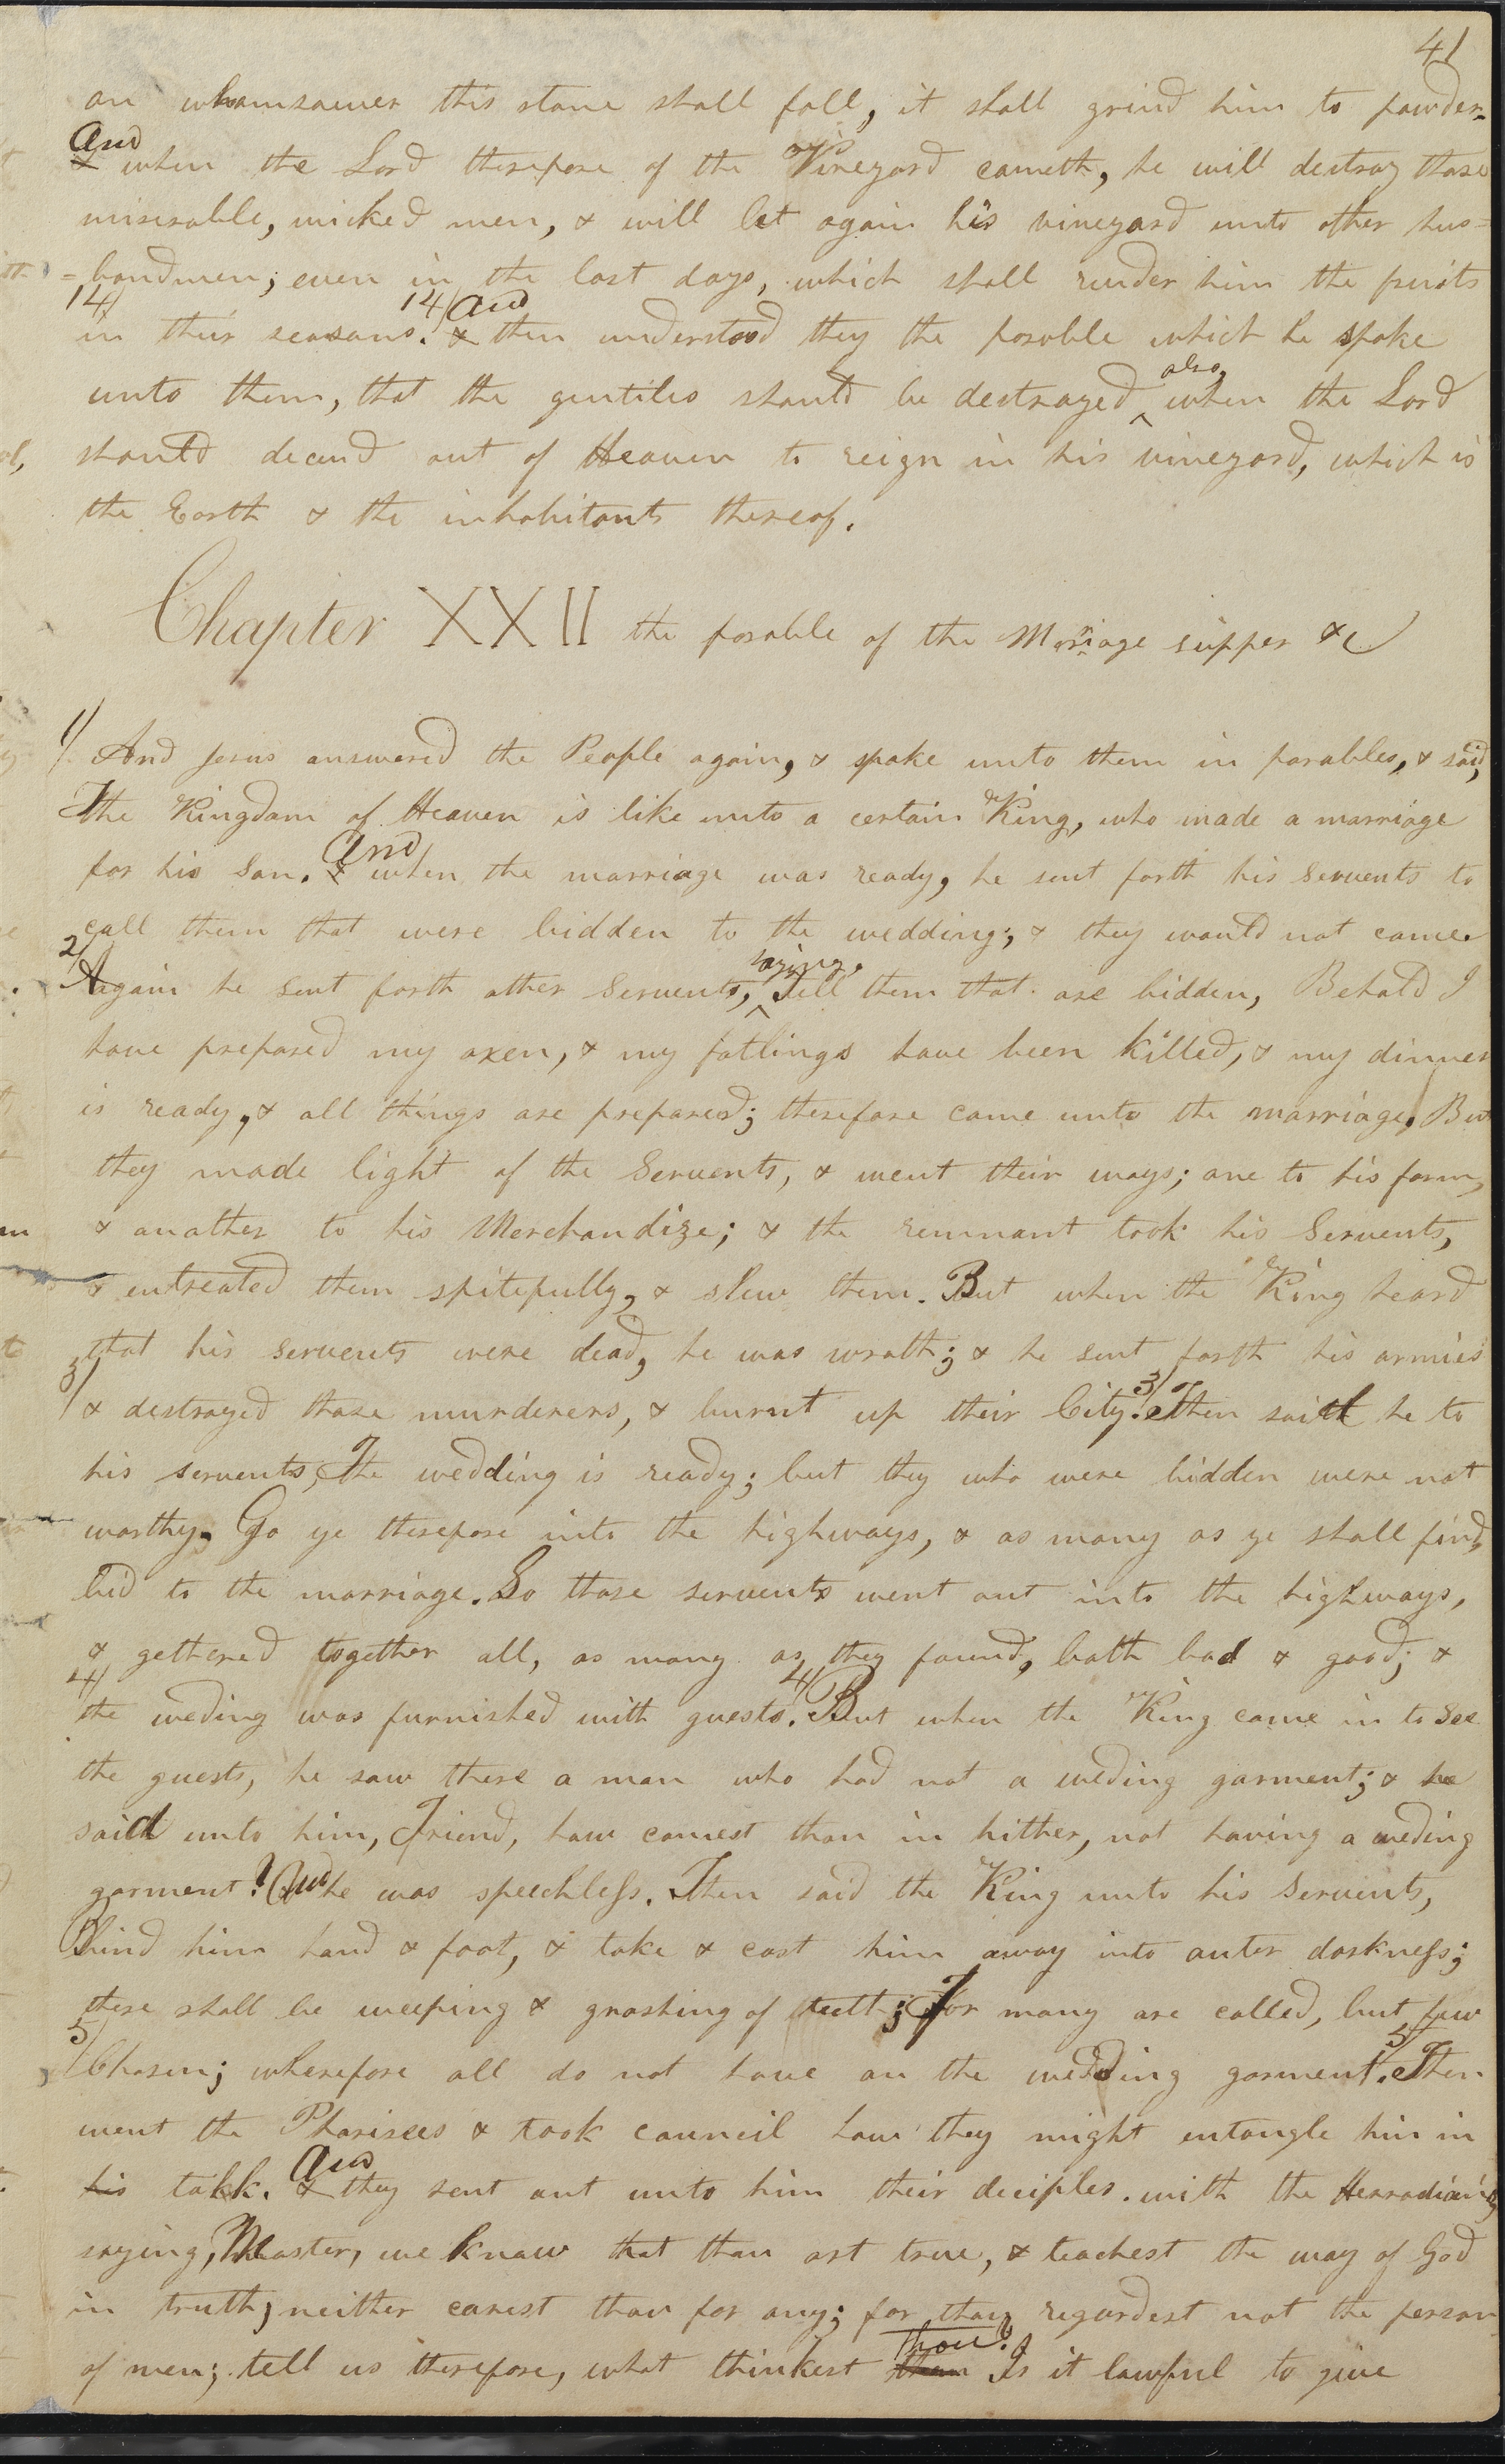 41
on whomsoever this stone shall fall, it shall grind him to powder.
And
& when the Lord therefore of the Vineyard cometh, he will destroy those
miserable, wicked men, & will let again his vineyard unto other hus=
=bandmen; even in the last days, which shall render him the fruits
14/ 14/ And
in their seasons. & then understood they the parable which he spoke
also,
unto them, that the gentiles should be destroyed ^ when the Lord
should decend out of Heaven to reign in his vineyard, which is
the Earth & the inhabitants thereof.
Chapter XXII the parable of the Mariage supper &c
1/ And Jesus answered the People again, & spake unto them in parables, & said,
The Kingdom of Heaven is like unto a certain King, who made a marriage
And
for his Son. & when the marriage was ready, he sent forth his Servents to
call them that were bidden to the wedding; & they would not come.
2/ saying,
Again he sent forth other Servents, ^ Tell them that are bidden, Behold I
have prepared my oxen, & my fatlings have been killed, & my dinner
is ready, & all things are prepared; therefore come unto the marriage. But
they made light of the Servents, & went their ways; one to his farm,
& another to his Merchandize; & the remnant took his Servents,
& entreated them spitefully, & slew them. But when the King heard
that his servents were dead, he was wroth; & he sent forth his armies
3/ 3/
& destroyed those murderers, & burnt up their City. Then saith he to
his servents, The wedding is ready; but they who were bidden were not
worthy. Go ye therefore into the highways, & as many as ye shall find,
bid to the marriage. So those servents went out into the highways,
& gethered together all, as many as they found, both bad & good; &
4/ 4/
the weding was furnished with guests. But when the King came in to see
the guests, he saw there a man who had not a weding garment; & he
said unto him, Friend, how comest thou in hither, not having a weding
garment? And he was speechless. Then said the King unto his Servents,
Bind him hand & foot, & take & cast him away into outer darkness;
there shall be weeping & gnashing of teeth; For many are called, but few
5/ 5/
Chosen; wherefore all do not have on the wedding garment. Then
went the Pharisees & took council how they might entangle him in
And
his talk. & they sent out unto him their deciples with the Herrodians,
saying, Master, we know that thou art true, & teachest the way of God
in truth, neither carest thou for any; for thou regardest not the person
thou?
of men; tell us therefore, what thinkest thou Is it lawful to give